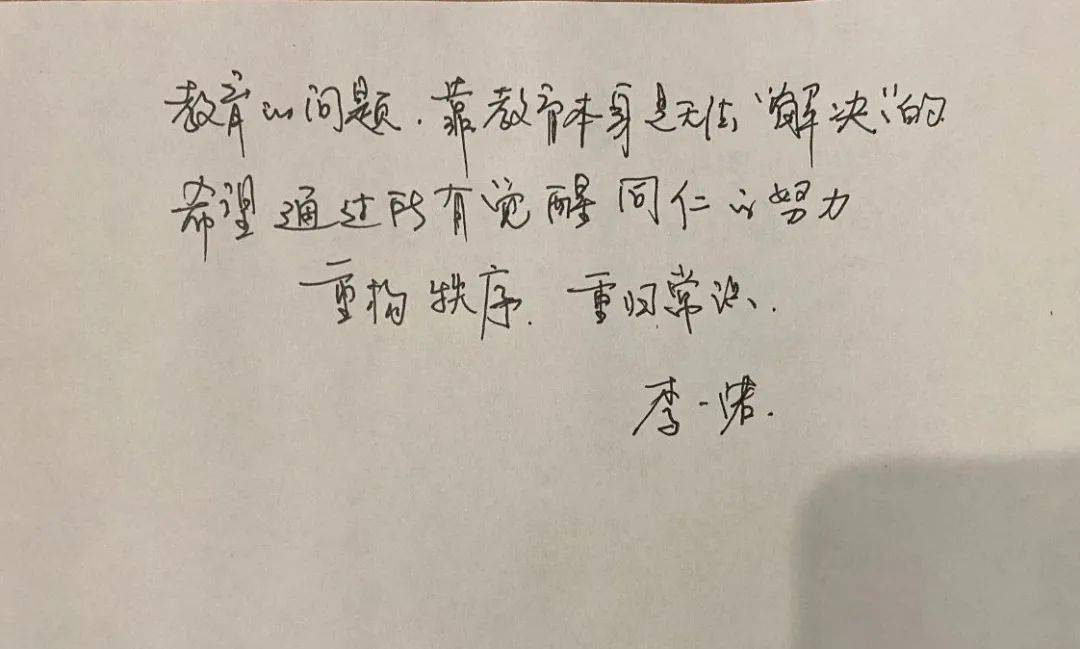 教育的问题，靠教育本身是无法“解决”的
希望通过所有觉醒同仁的努力
重构秩序，重归常识．
李一诺．